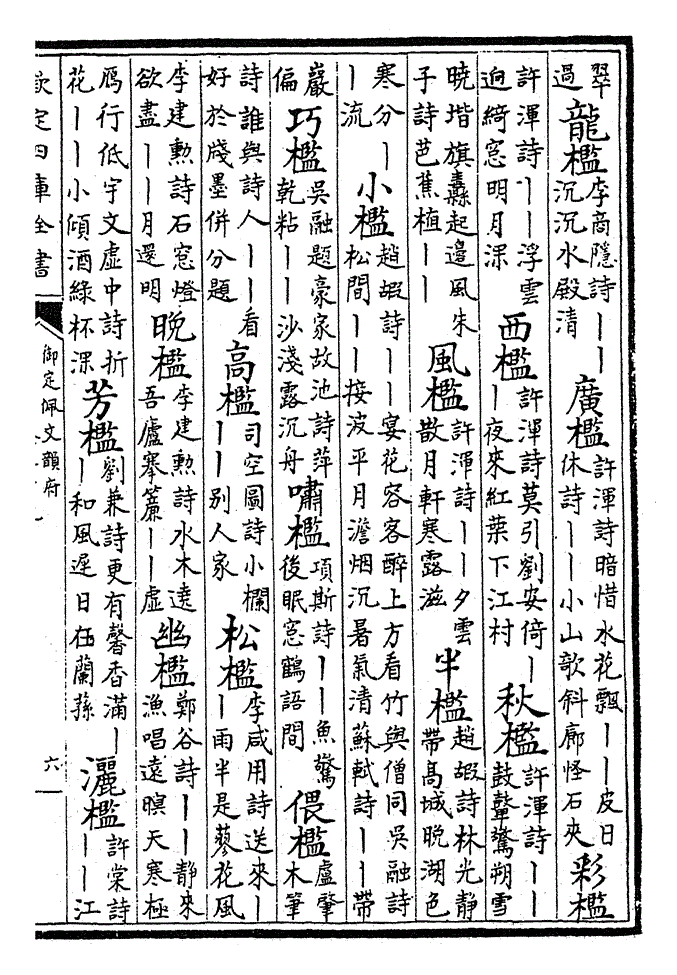 翠過龍檻李商隱詩丨丨沉沉水殿清廣檻許渾詩暗惜水花飄丨丨皮日休詩丨丨小山歌斜廊怪石夾彩檻
許渾詩丨丨浮雲迥綺窓明月深西檻許渾詩莫引劉安倚丨丨夜來紅葉下江村秋檻許渾詩丨丨鼓鼙驚朔雪
曉堦旗纛起邉風朱子詩芭蕉植丨丨風檻許渾詩丨丨夕雲散月軒寒露滋半檻趙嘏詩林光靜帶高城晚湖色
寒分丨丨流小檻趙嘏詩丨丨宴花容客醉上方看竹與僧同吳融詩松間丨丨接波平月澹烟沉暑氣清蘇軾詩丨丨帶
巖偏巧檻吳融題豪家故池詩萍乾粘丨丨沙淺露沉舟嘯檻項斯詩丨丨魚驚後眠窓鶴語間偎檻盧肇木筆
詩誰與詩人丨丨看好於牋墨併分題高檻司空圖詩小欄丨丨别人家松檻李咸用詩送來丨丨雨半是蓼花風
李建勲詩石窓燈欲盡丨丨月還明晚檻李建勲詩水木逺吾廬搴簾丨丨虛幽檻鄭谷詩丨丨靜來漁唱逺暝天寒極
鴈行低宇文虛中詩折花丨丨小傾酒綠杯深芳檻劉兼詩更有馨香滿丨丨和風遲日在蘭蓀灑檻許棠詩丨丨江
欽定四庫全書
御定佩文韻府
六